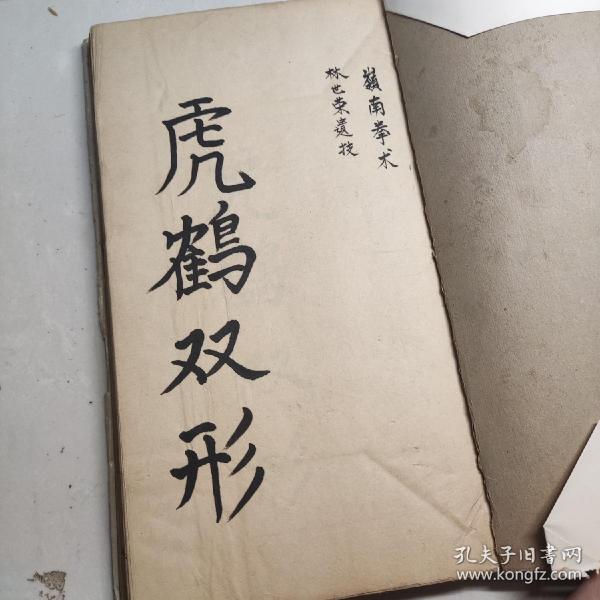 嶺南拳术
林世荣遺技
虎鶴双形
孔夫子旧书网
www.kongfz.com